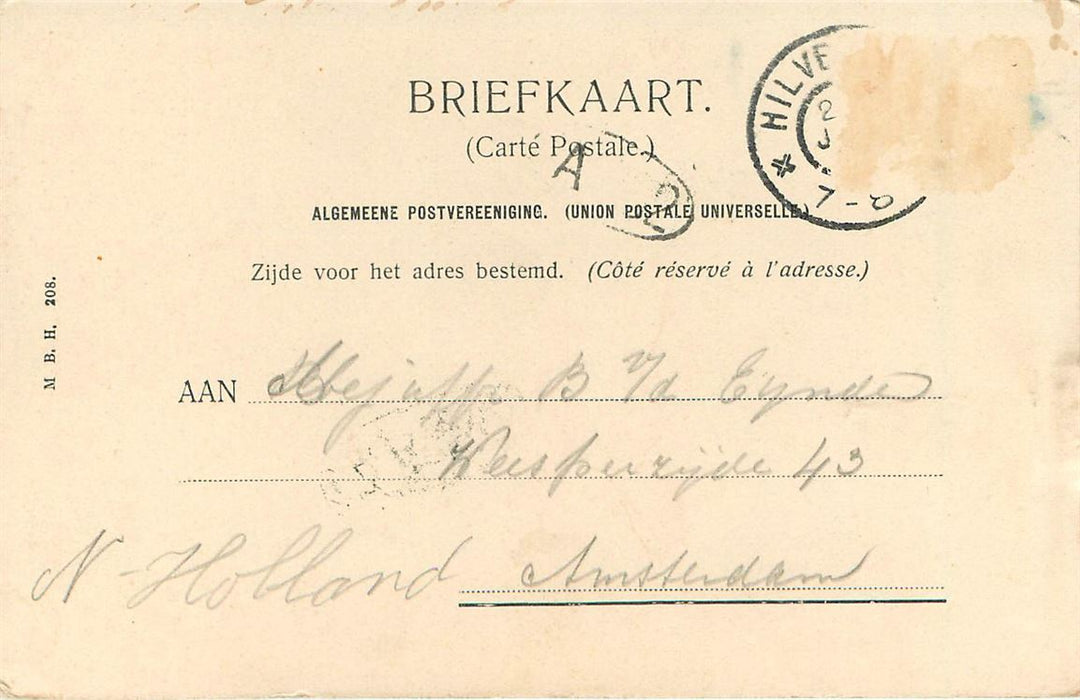 BRIEFKAART.
(Carté Postale.)
HILVE
2
J
7-8
A
2
ALGEMEENE POSTVEREENIGING. (UNION POSTALE UNIVERSELLE.)
Zijde voor het adres bestemd. (Côté réservé à l'adresse.)
M B. H. 208.
AAN B v/d Eynde
Weesperzijde 43
N-Holland Amsterdam